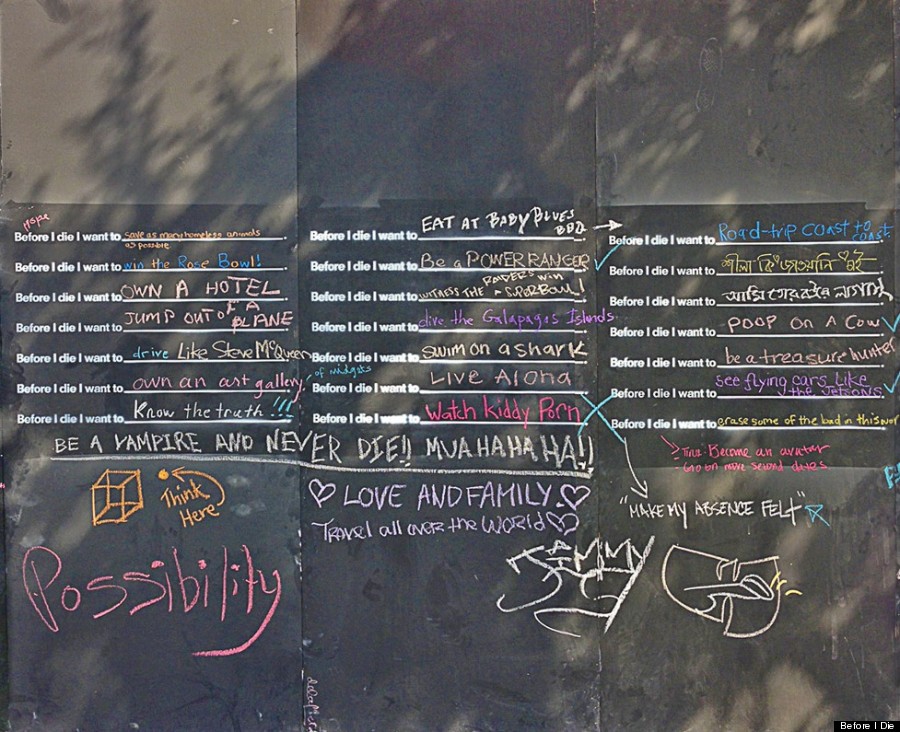 hope
Before I die I want to save as many homeless animals
as possible.
Before I die I want to win the Rose Bowl!
Before I die I want to OWN A HOTEL
Before I die I want to JUMP OUT OF A PLANE
Before I die I want to drive Like Steve McQueen
Before I die I want to own an art gallery.
Before I die I want to Know the truth!!!
Before I die I want to EAT AT BABY BLUES
BBQ
Before I die I want to Be a POWER RANGER
Before I die I want to WITNESS THE RAIDERS win a SUPERBOWL!
Before I die I want to dive the Galapagos Islands
Before I die I want to swim on a shark
of midgets
Before I die I want to Live Aloha
Before I die I want to Watch Kiddy Porn
Before I die I want to Road-trip COAST to
COAST.
Before I die I want to শীলা কি জাওয়ানি
Before I die I want to আমি
Before I die I want to POOP ON A COW
Before I die I want to be a treasure hunter
Before I die I want to see flying cars Like
the Jetsons.
Before I die I want to erase some of the bad in this
BE A VAMPIRE AND NEVER DIE!! MUA HA HA HA!!
Think
Here
Possibility
LOVE AND FAMILY
Travel all over the World
Tina: Become an avatar
- Go on more second dates
"MAKE MY ABSENCE FELT"
SAMMY
Before I Die